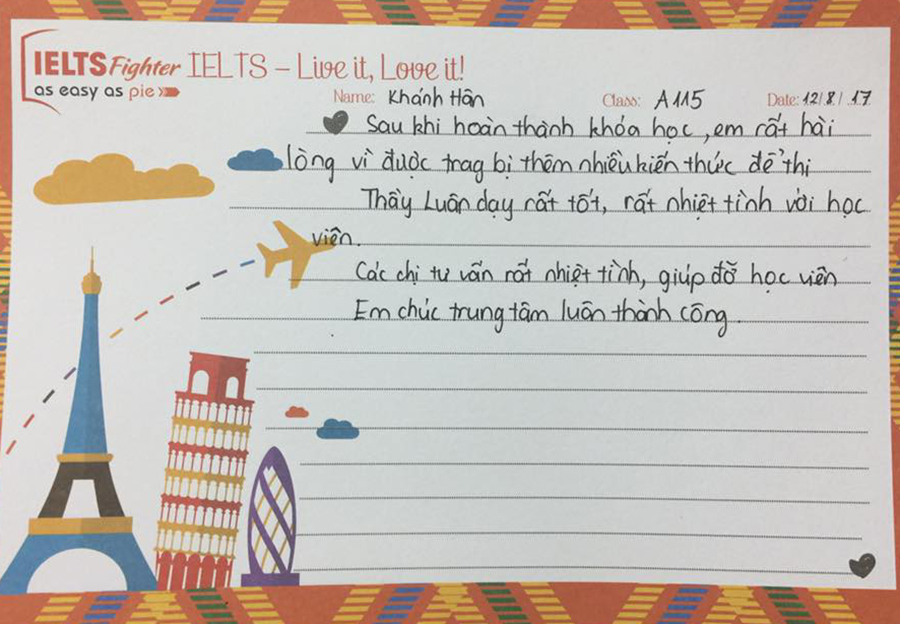 IELTS Fighter IELTS – Live it, Love it!
as easy as pie
Name: Khánh Hân Class: A115 Date: 12/8/ 17
Sau khi hoàn thành khóa học, em rất hài
lòng vì được trag bị thêm nhiều kiến thức để thi
Thầy Luân dạy rất tốt, rất nhiệt tình với học
viên.
Các chị tư vấn rất nhiệt tình, giúp đỡ học viên
Em chúc trung tâm luôn thành công.